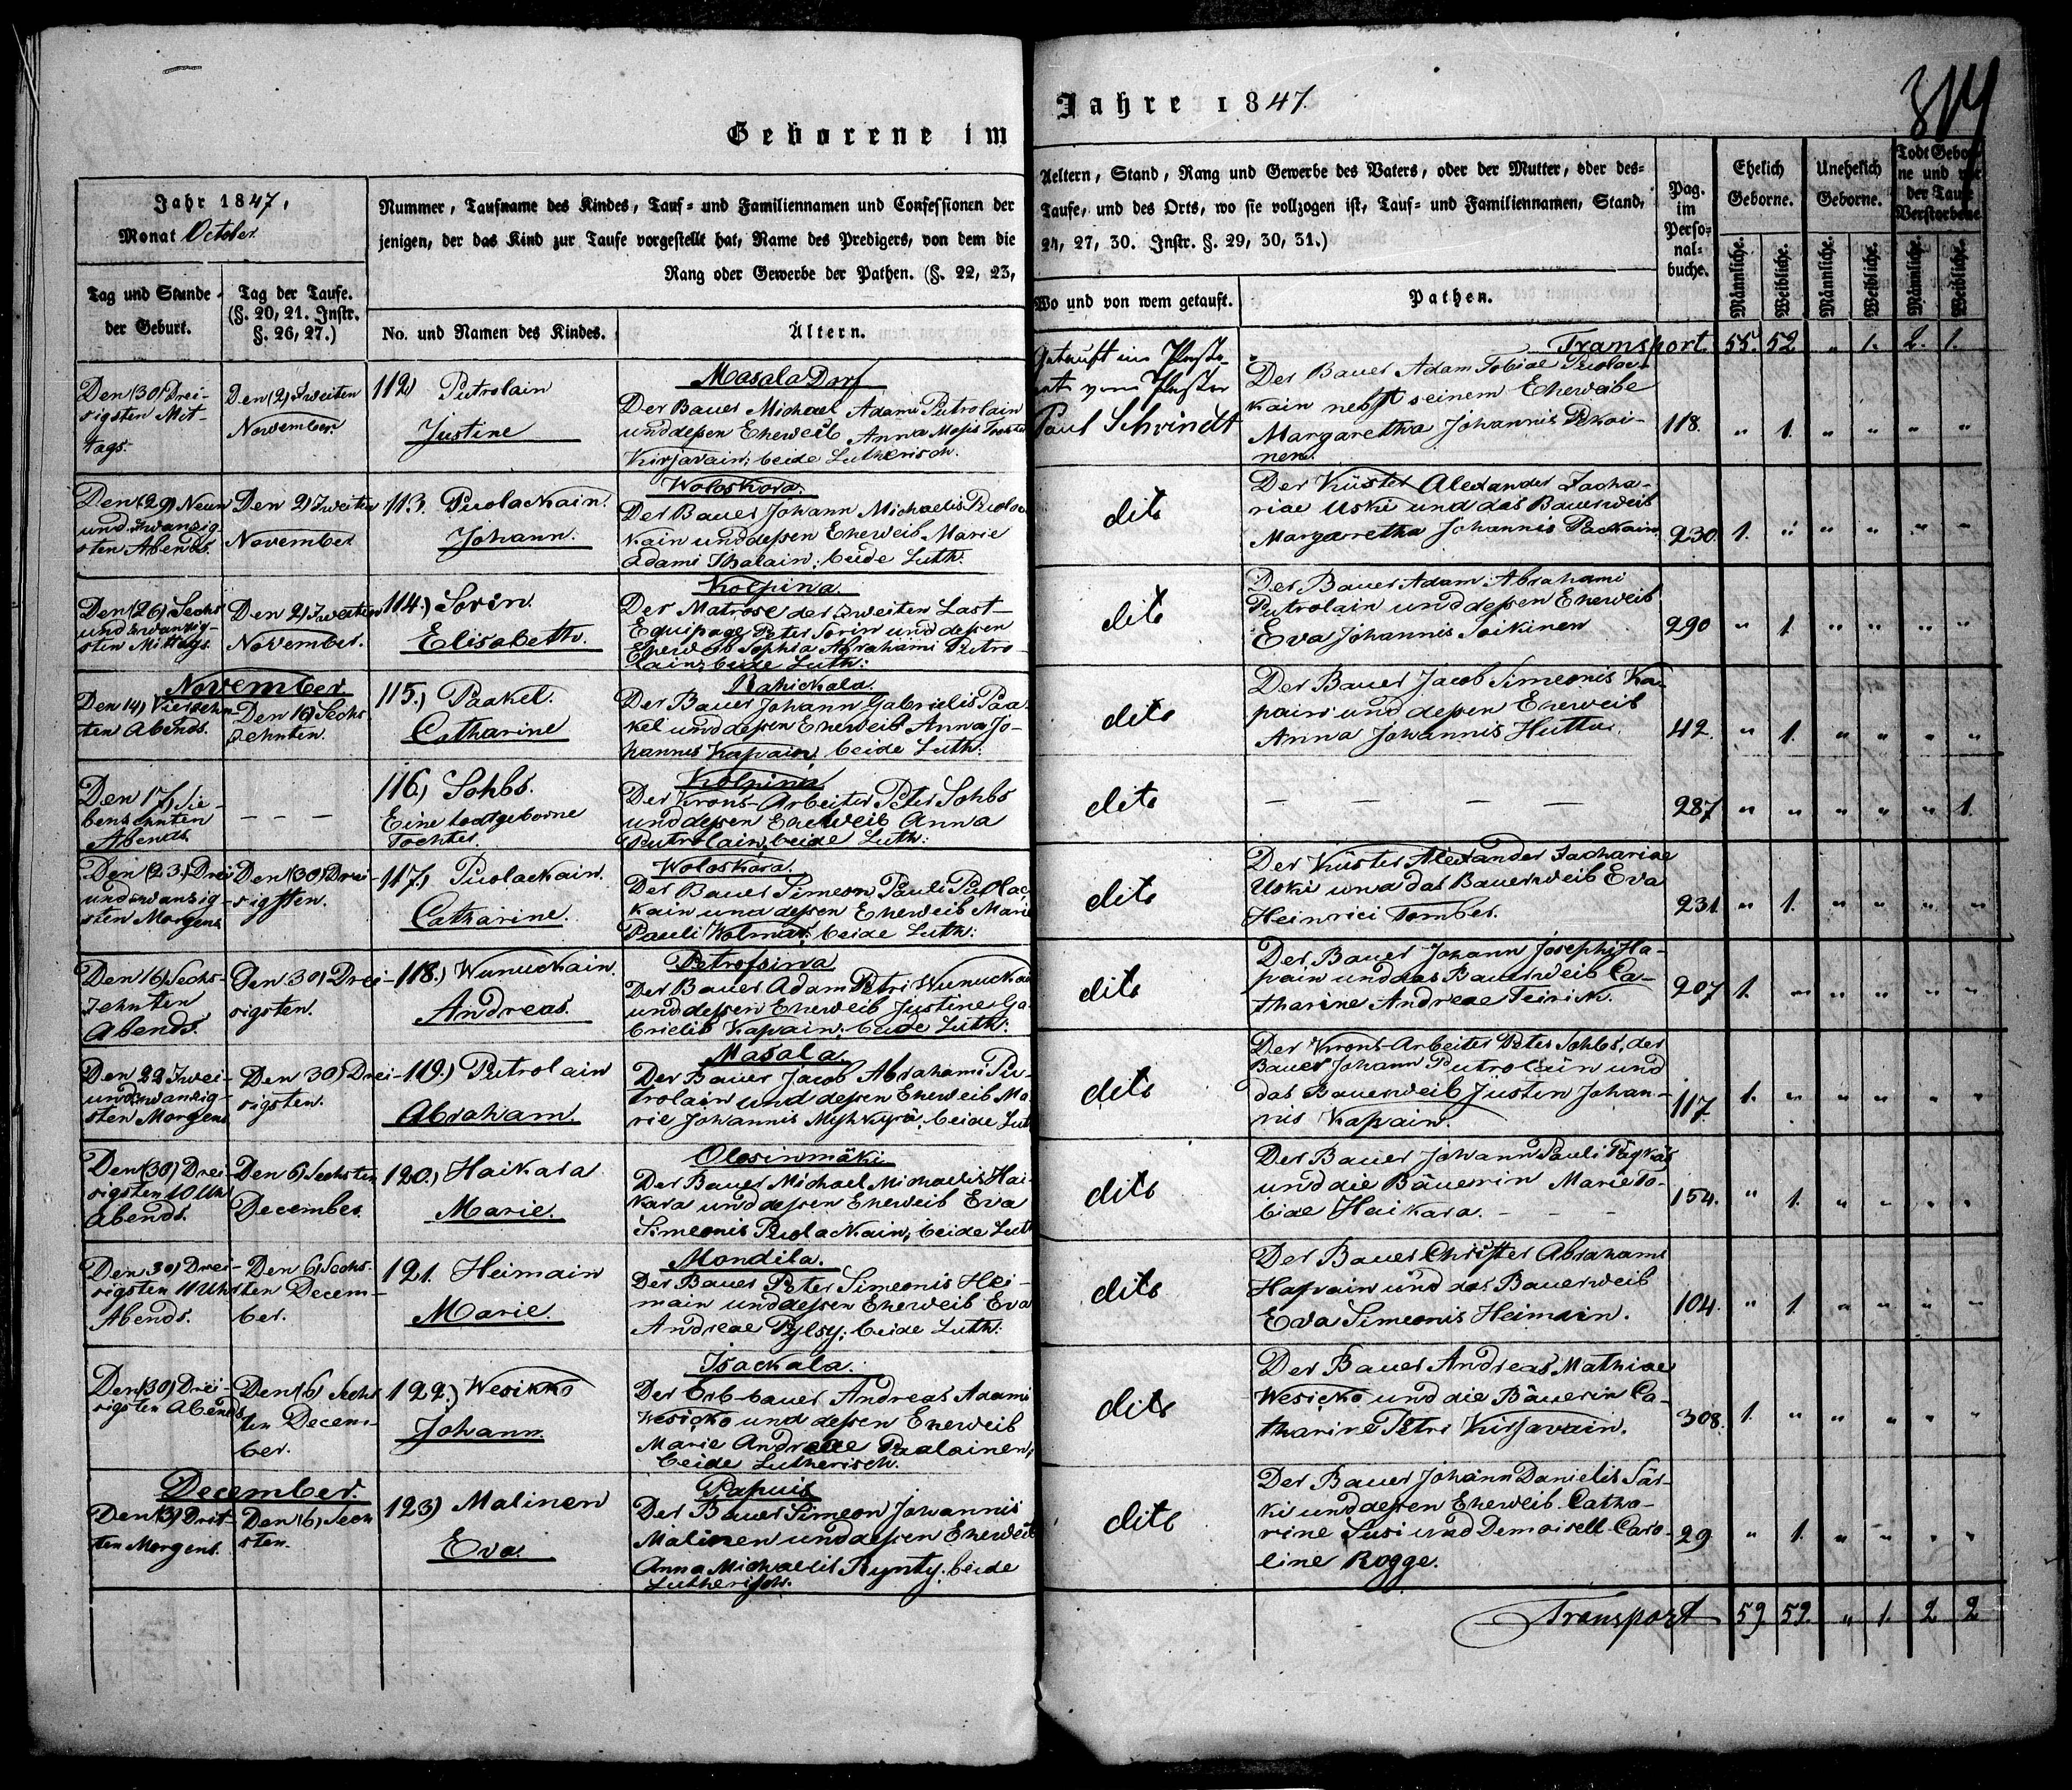 814
Geborene im Jahre 1847.
Jahr 1847,
Monat October.
Tag und Stunde
der Geburt.
Tag der Taufe.
(§. 20, 21. Instr.
§. 26, 27.)
Nummer, Taufname des Kindes, Tauf- und Familiennamen und Confessionen der
jenigen, der das Kind zur Taufe vorgestellt hat, Name des Predigers, von dem die
Rang oder Gewerbe der Pathen. (§. 22, 23,
No. und Namen des Kindes.
Ältern.
Aeltern, Stand, Rang und Gewerbe des Vaters, oder der Mutter, oder des-
Taufe, und des Orts, wo sie vollzogen ist, Tauf- und Familiennamen, Stand,
24, 27, 30. Instr. §. 29, 30, 31.)
Wo und von wem getauft.
Pathen.
Pag.
im
Perso-
nal-
buche.
Ehelich
Geborne.
Unehelich
Geborne.
Todt Gebor-
ne und vor
der Taufe
Verstorbene
Männliche.
Weibliche.
Männliche.
Weibliche.
Männliche.
Weibliche.
Transport. 55. 52 „ 1. 2. 1.
Den (30) Drei-
sigsten Mit-
tags.
Den (2) Zweiten
November.
112) Putrolain
Justine
Masala Dorf
Der Bauer Michael Adami Putrolain
und deßen Eheweib Anna Mosis Tochter
Kirjavain; beide Lutherisch.
Getauft im Pasto-
rat vom Pastor
Paul Schvindt
Der Bauer Adam Tobiae Puolac-
kain nebst seinem Eheweibe
Margaretha Johannis
nen.
118. „ 1. „ „ „ „
Den (29) Neun
und zwanzig-
sten Abends.
Den 2) Zweiten
November
113. Puolackain.
Johann.
Woloskora.
Der Bauer Johann Michaelis Puolac
kain und deßen Eheweib Marie
Adami Ihalain; beide Luth.
dito
Der Küster Alexander Zacha-
riae Uski und das Bauerweib
Margaretha Johannis Packain.
230. 1. „ „ „ „ „
Den (26) Sechs
und zwanzig-
sten Mittags.
Den 2) Zweiten
November.
114.) Sorin.
Elisabeth.
Kolpina.
Der Matrose der zweiten Last-
Equipage Peter Sorin und deßen
Eheweib Sophia Abrahami Putro-
lain; beide Luth:
dito
Der Bauer Adam Abrahami
Putrolain und deßen Eheweib
Eva Johannis Soikinen
290 „ 1. „ „ „ „
November.
Den 14) Vierzehn
ten Abends.
Den 16) Sechs
zehnten.
115.) Paakel.
Catharine
Rahickala.
Der Bauer Johann Gabrielis Paa
kel und deßen Eheweib Anna Jo-
hannis Kapain; beide Luth.
dito
Der Bauer Jacob Simeonis Ka-
pain und deßen Eheweib
Anna Johannis Huttu.
42. „ 1. „ „ „ „
Den 17, Sie-
benzehnten
Abends.
— — —
116.) Sohbs.
Eine todtgeborne
Tochter.
Kolpina
Der Krons-Arbeiter Peter Sohbs
und deßen Eheweib Anna
Putrolain, beide Luth:
dito
— — — —
287 „ „ „ „ „ 1.
Den (23.) Drei
und zwanzig-
sten Morgens
Den (30) Drei-
sigsten.
117.) Puolackain.
Catharine.
Woloskora.
Der Bauer Simeon Pauli Puolac
kain und deßen Eheweib Marie
Pauli Wolmar: beide Luth:
dito
Der Küster Alexander Zachariae
Uski und das Bauerweib Eva
Heinrici Tomber.
231. „ 1. „ „ „ „
Den 16) Sechs-
zehnten
Abends.
Den 30) Drei-
sigsten.
118.) Wunuckain.
Andreas.
Petrofsina
Der Bauer Adam Petri Wunuckai
und deßen Eheweib Justine Ga
brielis Kapain; beide Luth:
dito
Der Bauer Johann Josephi Ha-
pain und das Bauerweib Ca-
tharine Andreae Teirik.
207 1. „ „ „ „ „
Den 22 Zwei-
und zwanzig-
sten Morgens
Den 30) Drei-
sigsten.
119.) Putrolain
Abraham.
Masala.
Der Bauer Jacob Abrahami Pu-
trolain und deßen Eheweib Ma
rie Johannis Myhkyrä; beide Luth
dito
Der Krons-Arbeiter Peter Sohbs, der
Bauer Johann Putrolain und
das Bauerweib Justin Johan-
nis Kapain.
117 1. „ „ „ „ „
Den (30) Drei-
sigsten 10 Uhr
Abends.
Den 6) Sechsten
December.
120.) Haikara
Marie.
Olosinmäki
Der Bauer Michael Michaelis Hai-
kara und deßen Eheweib Eva
Simeonis Puolackain; beide Luth
dito
Der Bauer Johann Pauli
und die Bäuerin Marie To-
biae Haikara. - - -
154. „ 1. „ „ „ „
Den 30) Drei-
sigsten 11 Uhr
Abends.
Den 6) Sechs-
ten Decem-
ber.
121. Heimain
Marie.
Mondila.
Der Bauer Peter Simeonis Hei-
main und deßen Eheweib Eva
Andreae Pylsy; beide Luth:
dito
Der Bauer Christer Abrahami
Hapain und das Bauerweib
Eva Simeonis Heimain.
104. „ 1. „ „ „ „
Den (30) Drei-
sigsten Abends
Den (6) Sechs
ten Decem-
ber.
122.) Wesikko
Johann
Isackala.
Der Erb-bauer Andreas Adami
Wesicko und deßen Eheweib
Marie Andreae Paalainen;
beide Lutherisch.
dito
Der Bauer Andreas Mathiae
Wesicko und die Bäuerin Ca-
tharine Petri Kirjavain.
308. 1. „ „ „ „ „
December.
Den (3) Drit-
ten Morgens.
Den (6) Sech
sten.
123) Malinen
Eva.
Papuis
Der Bauer Simeon Johannis
Malinen und deßen Eheweib
Anna Michaelis Rynty; beide
Lutherisch.
dito
Der Bauer Johann Danielis Sär-
ki und deßen Eheweib Catha-
rine Susi und Demoisell. Caro-
line Rogge.
29. „ 1. „ „ „ „
Transport 59 59. „ 1. 2 2